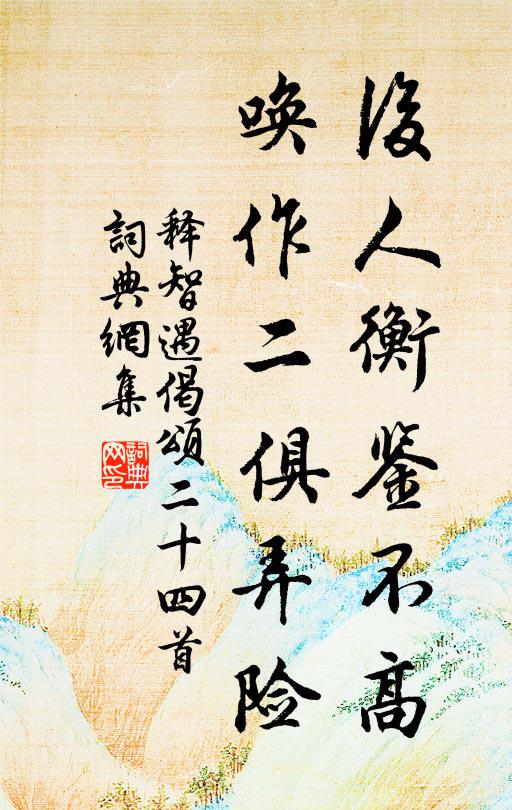 後人衡鉴不高
唤作二俱弄险
释智遇偈頌二十四首
詞典網集
詞典网印